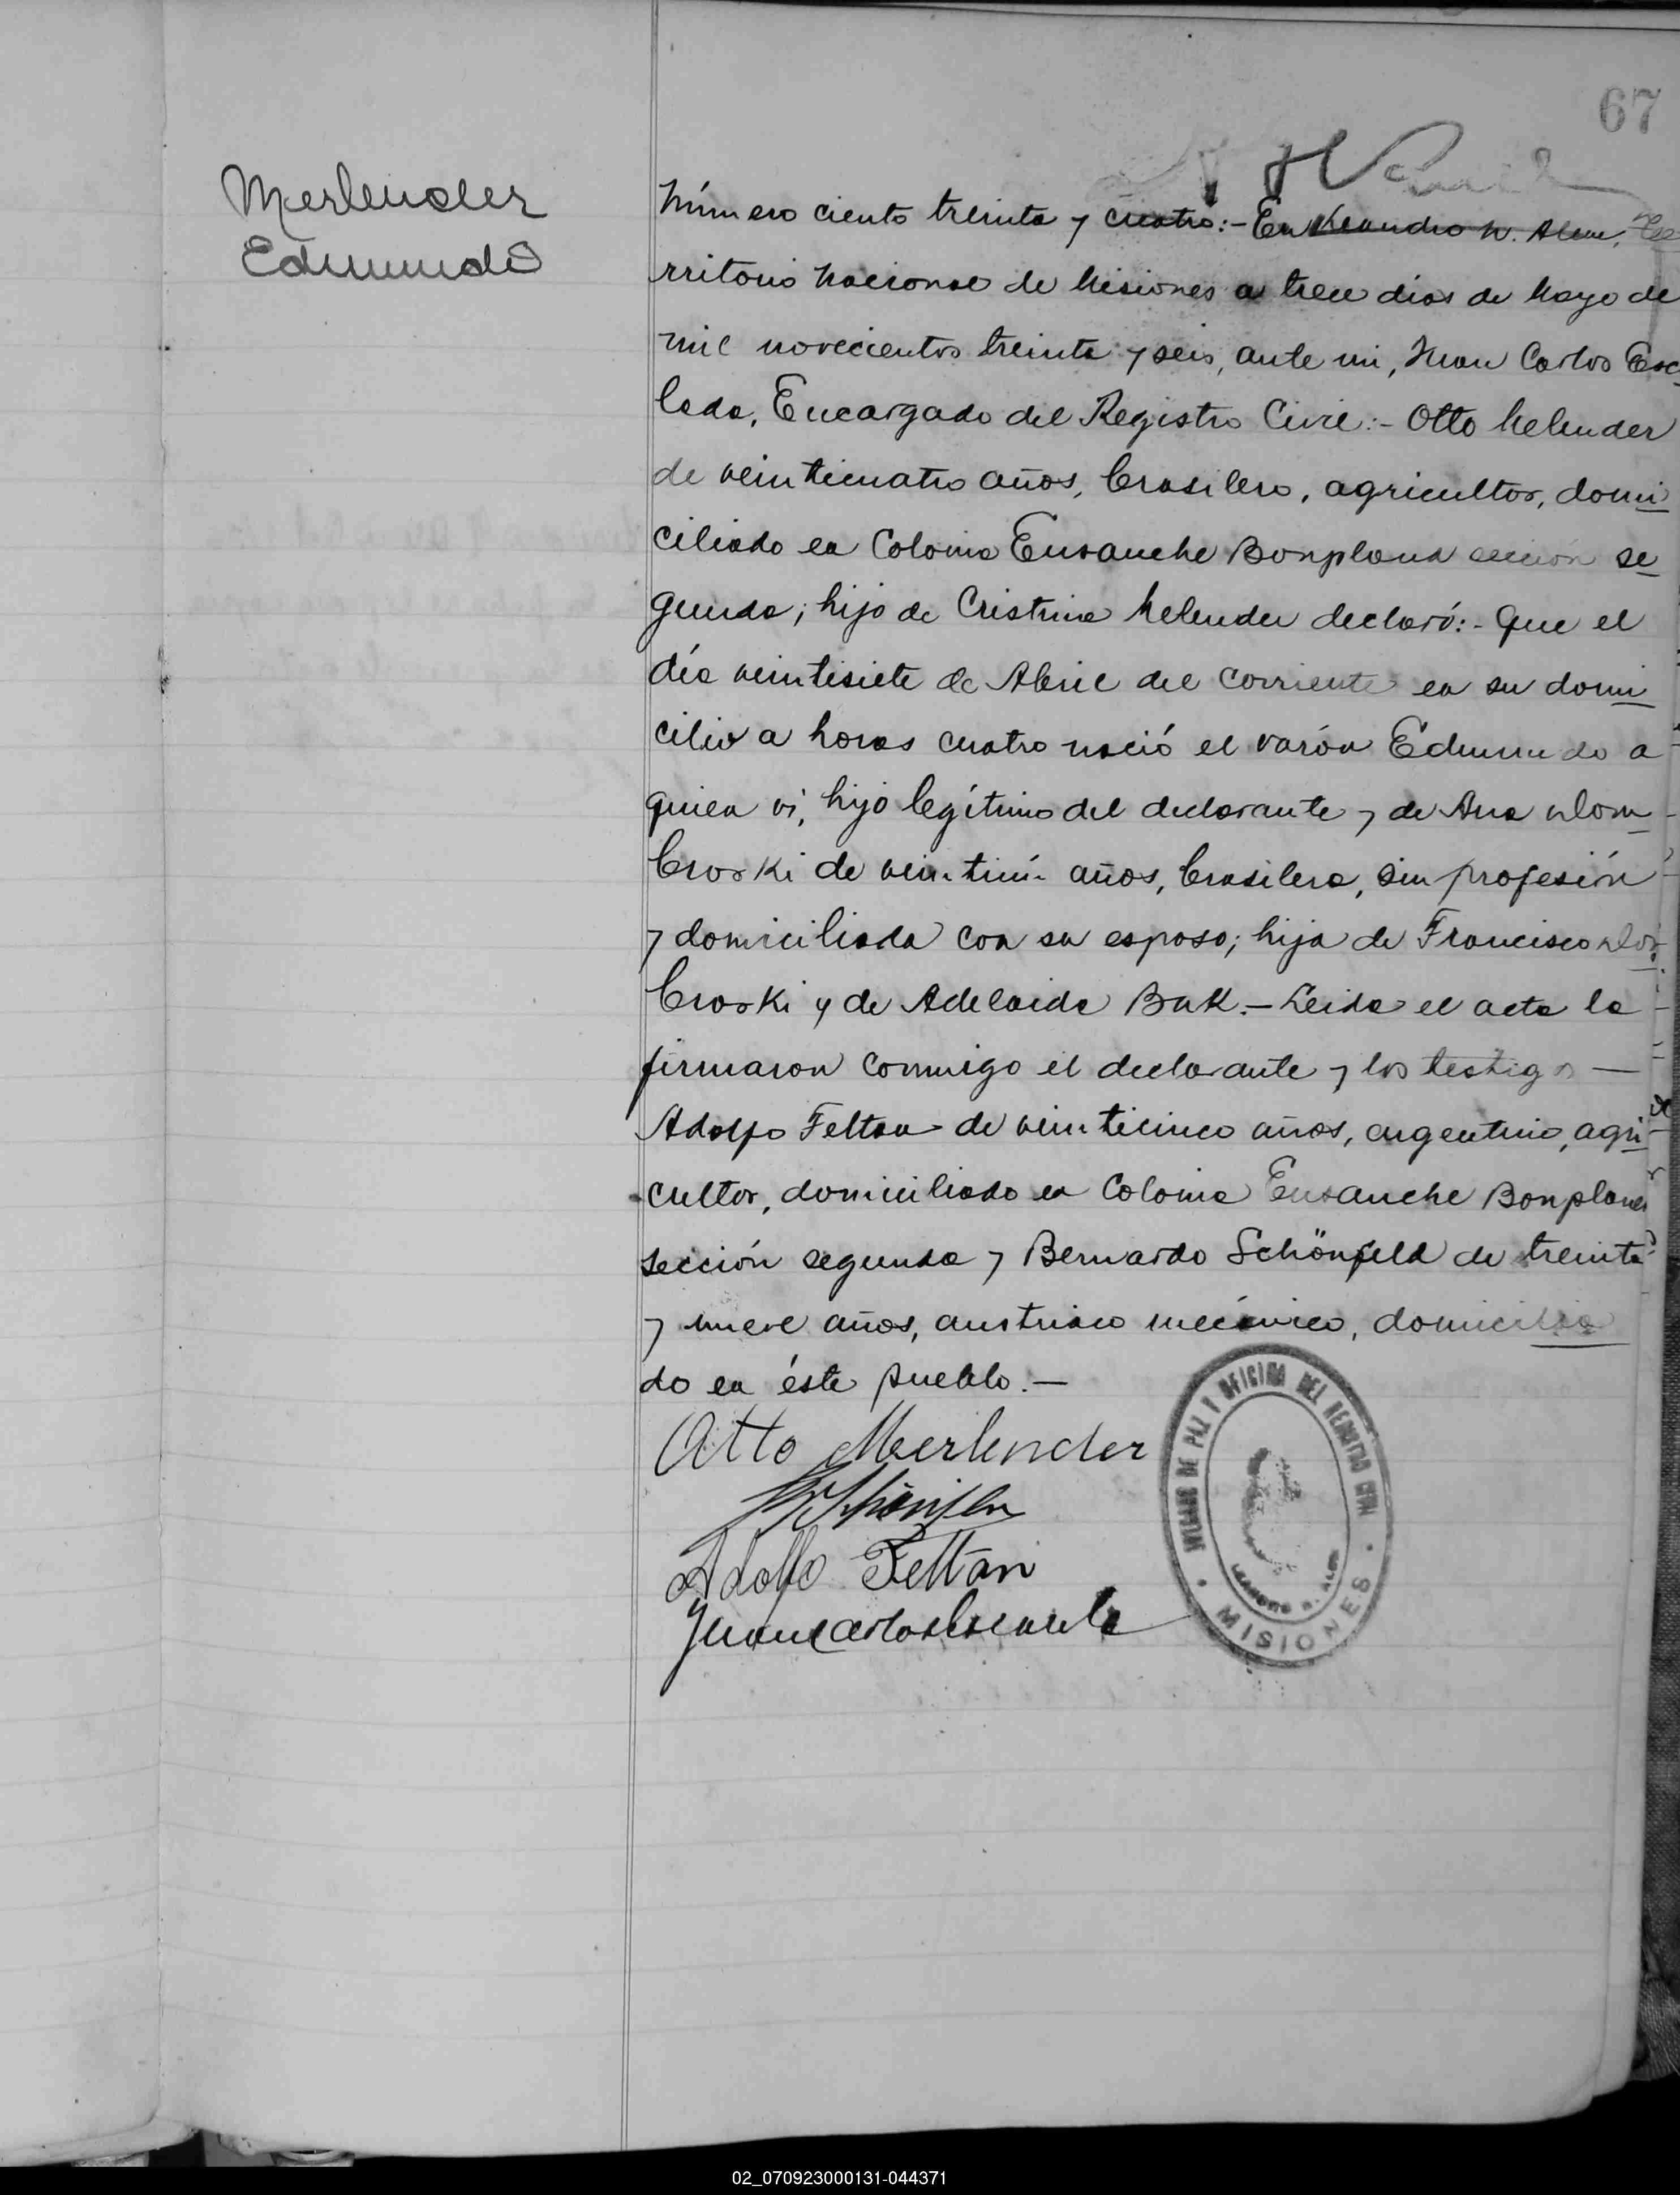 67
Merlender
Edmundo
Número ciento treinta y cuatro:- En Leandro N. Alem, Te
rritorio Nacional de Misiones a trece días de Mayo de
mil novecientos treinta y seis, ante mi, Juan Carlos Esc
lada, Encargado del Registro Civil:- Otto Melender
de veinticuatro años, brasilero, agricultor, domi
ciliado en Colonia Ensanche Bonpland sección se
gunda; hijo de Cristina Melender declaró:- Que el
día veintisiete de Abril del corriente en su domi
cilio a horas cuatro nació el varón Edmundo a
quien vi, hijo legítimo del declarante y de Ana Dom
broski de veintiún años, brasilera, sin profesión
y domiciliada con su esposo; hija de Francisco
broski y de Adelaida Buk.- Leida el acta la
firmaron conmigo el declarante y los testigos —
Adolfo Feltan de veinticinco años, argentino, agri
cultor, domiciliado en Colonia Ensanche Bonpland
sección segunda y Bernardo Schönfeld de treinta
y nueve años, austriaco mecánico, domicilia
do en éste pueblo.—
Otto Merlender
Adolfo Feltan
Juan Carlos
JUZGADO DE PAZ Y OFICINA DEL REGISTRO CIVIL
LEANDRO N. ALEM
MISIONES
02_070923000131-044371